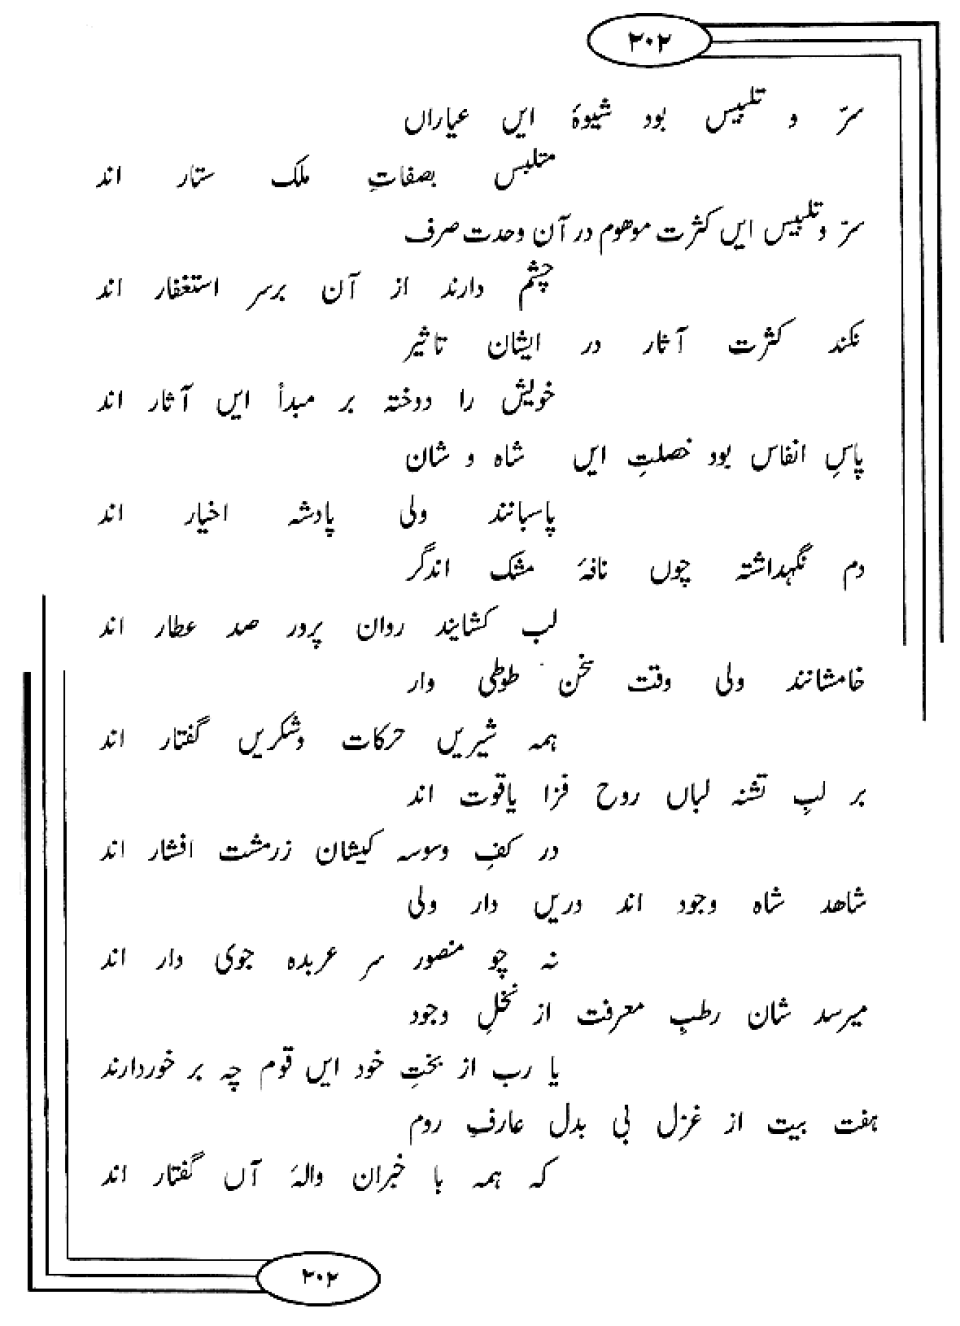 ۳۰۲
سرّ و تلبیس بود شیوۂ ایں عیاراں
متلبس بصفاتِ ملک ستار اند
سرّ و تلبیس ایں کثرت موھوم در آن وحدت صرف
چشم دارند از آن برسر استغفار اند
نکند کثرت آثار در ایشان تاثیر
خویش را دوختہ بر مبدأ ایں آثار اند
پاسِ انفاس بود خصلتِ ایں شاہ و شان
پاسبانند ولی پادشہ اخیار اند
دم نگہداشتہ چوں نافۂ مشک اندگر
لب کشایند روان پرور صد عطار اند
خامشانند ولی وقت سخن طوطی وار
ہمہ شیریں حرکات وشکریں گفتار اند
بر لبِ تشنہ لباں روح فزا یاقوت اند
در کفِ وسوسہ کیشان زرمشت افشار اند
شاھد شاہ وجود اند دریں دار ولی
نہ چو منصور سر عربدہ جوی دار اند
میرسد شان رطبِ معرفت از نخلِ وجود
یا رب از بختِ خود ایں قوم چہ بر خوردارند
ہفت بیت از غزل بی بدل عارفِ روم
کہ ہمہ با خبران والۂ آں گفتار اند
۳۰۲